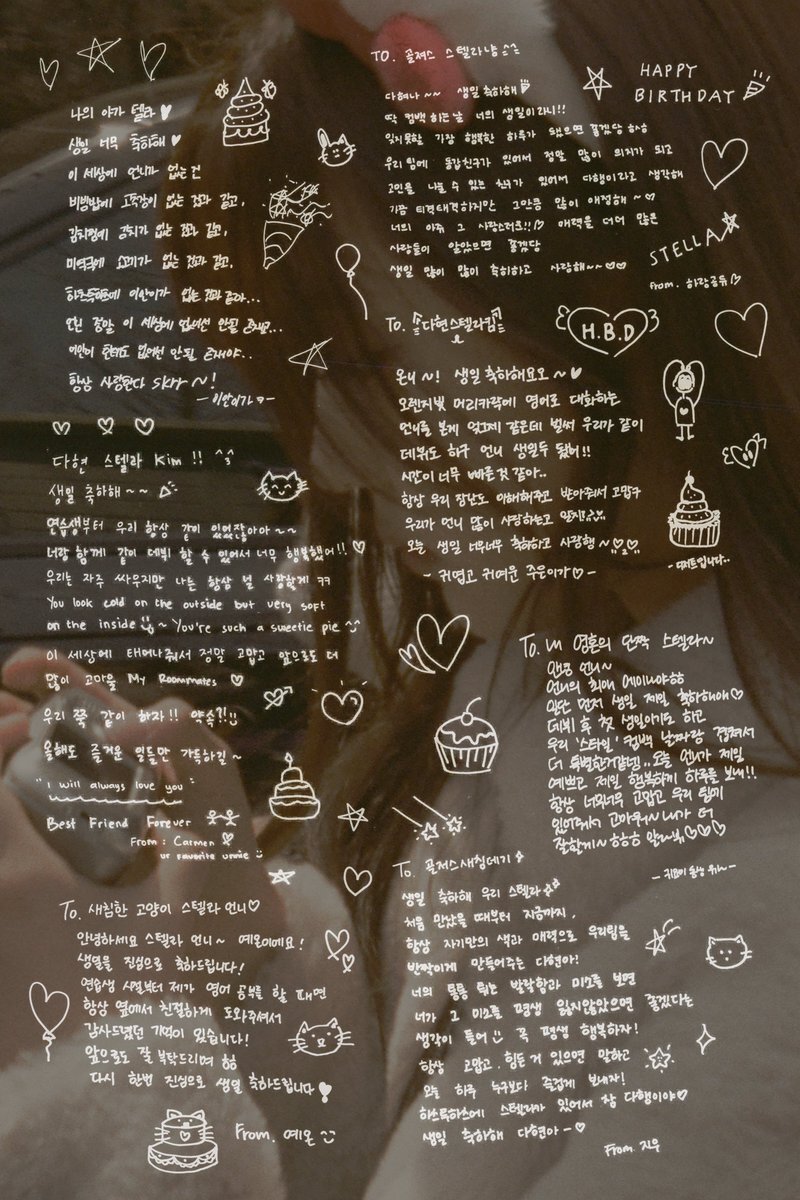 나의 아가 텔라
생일 너무 축하해
이 세상에 언니가 없는건
비빔밥에 고추장이 없는 것과 같고,
김치찜에 김치가 없는 것과 같고,
미역국에 소고기가 없는 것과 같고,
하츠투하츠에 이안이가 없는 것과 같다...
언니 정말 이 세상에 없어선 안될 존재고...
이안이 한테도 없어선 안될 존재야..
항상 사랑한다 skrr ~!
- 이안이가 -
다현 스텔라 Kim !!
생일 축하해 ~~
연습생부터 우리 항상 같이 있었잖아아 ~~
너랑 함께 같이 데뷔 할 수 있어서 너무 행복했어!! ♡
우리는 자주 싸우지만 나는 항상 널 사랑할게 ㅋㅋ
You look cold on the outside but very soft
on the inside ~ You're such a sweetie pie
이 세상에 태어나줘서 정말 고맙고 앞으로도 더
많이 고마울 My Roommates ♡
우리 쭉 같이 하자!! 약속?!
올해도 즐거운 일들만 가득하길 ~
"i will always love you"
Best Friend Forever
From : Carmen
ur favorite unnie
To. 새침한 고양이 스텔라 언니♡
안녕하세요 스텔라 언니~ 예온이에요!
생일을 진심으로 축하드립니다!
연습생 시절부터 제가 영어 공부를 할 때면
항상 옆에서 친절하게 도와주셔서
감사드렸던 기억이 있습니다!
앞으로도 잘 부탁드리며 ㅎㅎ
다시 한번 진심으로 생일 축하드립니다
From. 예온
TO. 골져스 스텔라냥
HAPPY
BIRTHDAY
다혀나 ~~ 생일 축하해
딱 컴백 하는 날 너의 생일이라니!!
잊지못할 가장 행복한 하루가 됐으면 좋겠당 ㅎㅎ
우리 팀에 동갑친구가 있어서 정말 많이 의지가 되고
고민을 나눌 수 있는 친구가 있어서 다행이라고 생각해
가끔 티격태격하지만 그만큼 많이 애정해 ~♡
너의 아주 그 사랑스러운!! 매력을 더더 많은
사람들이 알았으면 좋겠당
생일 많이 많이 축하하고 사랑해~~♡♡
STELLA
From. 하랑공듀
To. 다현스텔라킴
H.B.D
온니 ~! 생일 축하해요오 ~♥
오렌지빛 머리카락에 영어로 대화하는
언니를 본게 엊그제 같은데 벌써 우리가 같이
데뷔도 하구 언니 생일두 됐어!!
시간이 너무 빠른 것 같아..
항상 우리 장난도 이해해주고 받아줘서 고맙구
우리가 언니 많이 사랑하는고 알지?
오늘 생일 너무너무 축하하고 사랑행~
- 귀엽고 귀여운 주은이가♡ -
- 디저트입니다..
To. 내 영혼의 단짝 스텔라~
안녕 언니~
언니의 최애 에이나야ㅎㅎ
일단 먼저 생일 제일 축하해애♡
데뷔 후 첫 생일이기도 하고
우리 '스타일' 컴백 날짜랑 겹쳐서
더 특별한거같넹.. 오늘 언니가 제일
예쁘고 제일 행복하게 하루를 보내!!
항상 너무너무 고맙고 우리 팀에
있어줘서 고마워~ 내가 더
잘할게~ ㅎㅎㅎ 알라뷰♡♡♡
To. 골져스새침데기
생일 축하해 우리 스텔라
처음 만났을 때부터 지금까지,
항상 자기만의 색과 매력으로 우리팀을
반짝이게 만들어주는 다현아!
너의 통통 튀는 발랄함과 미소를 보면
너가 그 미소를 평생 잃지않았으면 좋겠다는
생각이 들어 꼭 평생 행복하자!
항상 고맙고, 힘든거 있으면 말하고
오늘 하루 누구보다 즐겁게 보내자!
하츠투하츠에 스텔라가 있어서 참 다행이야♡
생일 축하해 다현아 -♡
From. 지우